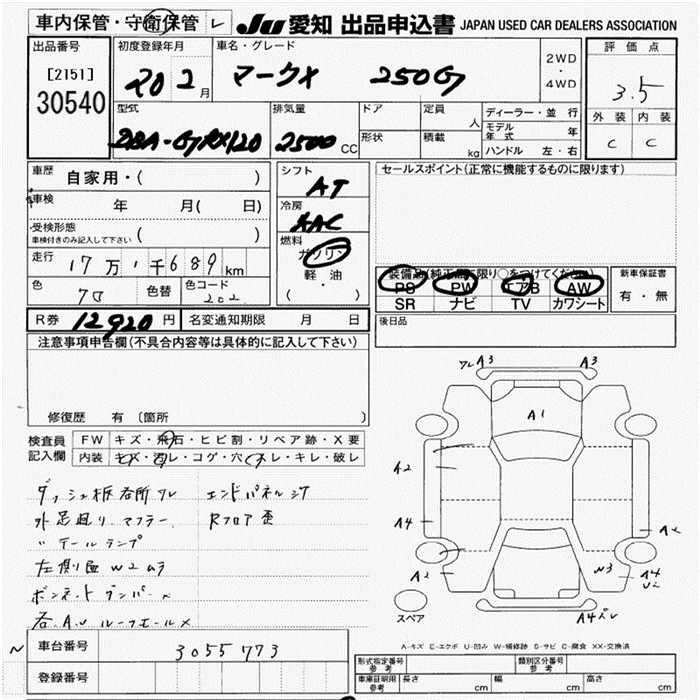 車内保管・守衛保管 レ JU 愛知 出品申込書 JAPAN USED CAR DEALERS ASSOCIATION
出品番号 初度登録年月 車名・グレード 2WD ・ 4WD 評価点
[2151] 20 2月 マークX 250G 3.5
30540
型式 排気量 ドア 定員 人 ディーラー・並行 外装 内装
DBA-GRX120 2500 CC 形状 積載 kg モデル年式 年 C C
ハンドル 左・右
車歴 自家用・( ) シフト AT セールスポイント(正常に機能するものに限ります)
車検 年 月( 日) 冷房 AAC
受検形態 車検付きのみ記入して下さい ( )
燃料 ガソリン
走行 17万1千689km 軽・油 装備品(純正品に限り○をつけてください) 新車保証書
色 70 色替 色コード 202 ( ・ ) PS PW エアB AW 有・無
SR ナビ TV カワシート
R券 12920円 名変通知期限 月 日 後日品
注意事項申告欄(不具合内容等は具体的に記入して下さい)
ワレ A3 A3
A1
修復歴 有 〔箇所 〕
検査員記入欄 FW キズ・飛石・ヒビ割・リペア跡・X要
内装 キズ・汚レ・コゲ・穴・スレ・キレ・破レ
A2
ダッシュ板各所ワレ エンドパネルシワ
外足廻リ、マフラー、 Rフロア歪
A4
〃 テールランプ
左側面W2ムラ
W3 A4
A2
ボンネット ダンパー×
スペア
A4
A-キズ E-エクボ U-凹み W-補修跡 S-サビ C-腐食 XX-交換済
車台番号 3055773
登録番号
型式指定番号 参考 類別区分番号 参考
車庫証明用 参考 長さ cm 幅 cm 高さ cm